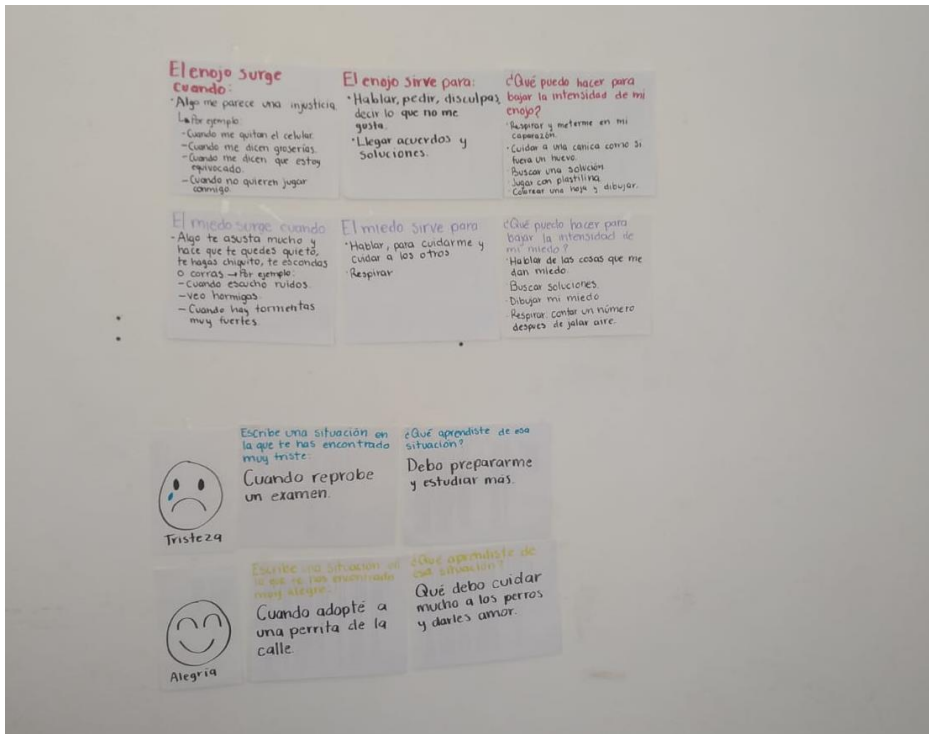 El enojo surge
cuando:
·Algo me parece una injusticia
↳Por ejemplo:
-Cuando me quitan el celular.
-Cuando me dicen groserías.
-Cuando me dicen que estoy
equivocado.
-Cuando no quieren jugar
conmigo.
El enojo sirve para:
·Hablar, pedir, disculpas,
decir lo que no me
gusta.
·Llegar acuerdos y
soluciones.
¿Qué puedo hacer para
bajar la intensidad de mi
enojo?
·Respirar y meterme en mi
caparazón.
·Cuidar a una canica como si
fuera un huevo.
·Buscar una solución
·Jugar con plastilina
·Colorear una hoja y dibujar.
El miedo surge cuando
-Algo te asusta mucho y
hace que te quedes quieto,
te hagas chiquito, te escondas
o corras → Por ejemplo:
-Cuando escucho ruidos.
-veo hormigas.
-Cuando hay tormentas
muy fuertes.
El miedo sirve para
·Hablar, para cuidarme y
cuidar a los otros
·Respirar
¿Qué puedo hacer para
bajar la intensidad de
mi miedo?
·Hablar de las cosas que me
dan miedo.
Buscar soluciones.
·Dibujar mi miedo
·Respirar: contar un número
despues de jalar aire.
Tristeza
Escribe una situación en
la que te has encontrado
muy triste:
Cuando reprobe
un examen.
¿Qué aprendiste de esa
situación?
Debo prepararme
y estudiar más.
Alegría
Escribe una situación en
la que te has encontrado
muy alegre.
Cuando adopté a
una perrita de la
calle.
¿Qué aprendiste de
esa situación?
Qué debo cuidar
mucho a los perros
y darles amor.